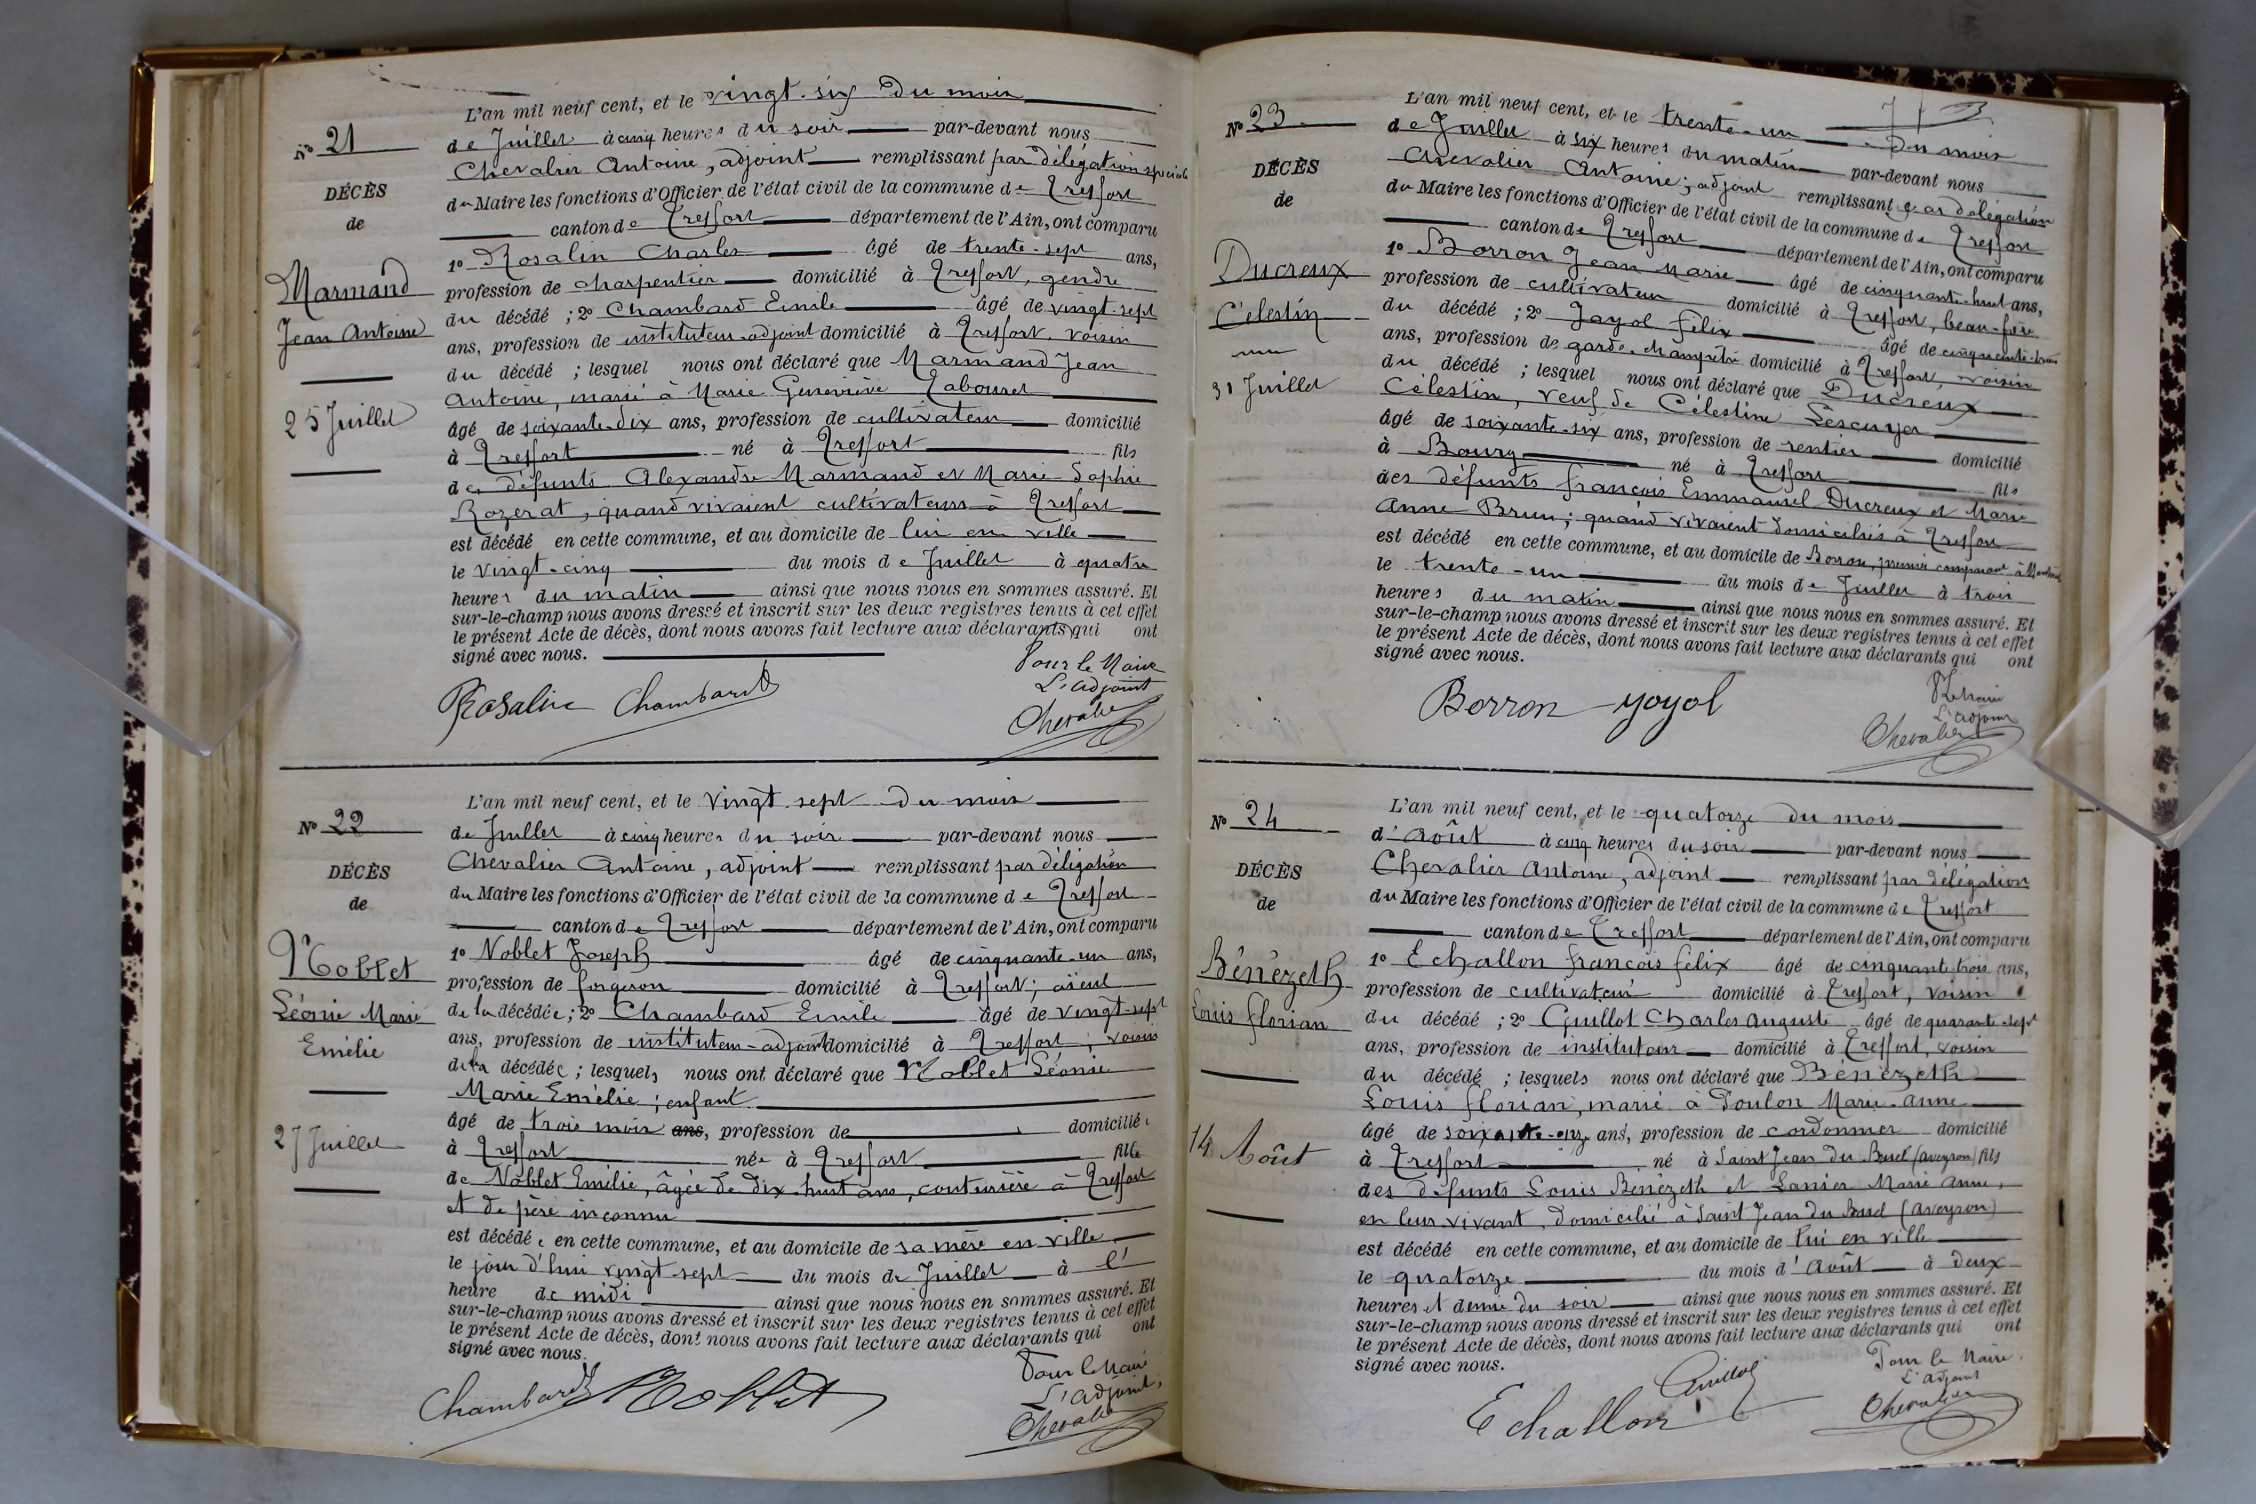 N° 21
DÉCÈS
de
Marmand
Jean Antoine
25 Juillet
L'an mil neuf cent, et le vingt-six du mois
de Juillet à cinq heures du soir par-devant nous
Chevalier Antoine, adjoint remplissant par délégation spéciale
du Maire les fonctions d'Officier de l'état civil de la commune de Treffort
canton de Treffort département de l'Ain, ont comparu
1° Rosalin Charles âgé de trente-sept ans,
profession de charpentier domicilié à Treffort, gendre
du décédé ; 2° Chambard Emile âgé de vingt-sept
ans, profession de instituteur-adjoint domicilié à Treffort, voisin
du décédé ; lesquel nous ont déclaré que Marmand Jean
Antoine, marié à Marie Geneviève Labouret
âgé de soixante-dix ans, profession de cultivateur domicilié
à Treffort né à Treffort fils
des défunts Alexandre Marmand et Marie Sophie
Rozerat, quand vivaient cultivateurs à Treffort
est décédé en cette commune, et au domicile de lui en ville
le vingt-cinq du mois de Juillet à quatre
heures du matin ainsi que nous nous en sommes assuré. Et
sur-le-champ nous avons dressé et inscrit sur les deux registres tenus à cet effet
le présent Acte de décès, dont nous avons fait lecture aux déclarants qui ont
signé avec nous.
Pour le Maire
L'adjoint
Rosalin Chambard Chevalier
N° 22
DÉCÈS
de
Noblet
Léonie Marie
Emélie
27 Juillet
L'an mil neuf cent, et le vingt-sept du mois
de Juillet à cinq heures du soir par-devant nous
Chevalier Antoine, adjoint remplissant par délégation
du Maire les fonctions d'Officier de l'état civil de la commune de Treffort
canton de Treffort département de l'Ain, ont comparu
1° Noblet Joseph âgé de cinquante-un ans,
profession de forgeron domicilié à Treffort ; aïeul
de la décédée ; 2° Chambard Emile âgé de vingt-sept
ans, profession de instituteur-adjoint domicilié à Treffort, voisin
de la décédée ; lesquels nous ont déclaré que Noblet Léonie
Marie Emélie ; enfant
âgé de trois mois ans, profession de domicilié
à Treffort née à Treffort fille
de Noblet Emélie, âgée de dix-huit ans, couturière à Treffort
et de père inconnu
est décédée en cette commune, et au domicile de sa mère en ville
le jour d'hui vingt-sept du mois de Juillet à l'
heure de midi ainsi que nous nous en sommes assuré. Et
sur-le-champ nous avons dressé et inscrit sur les deux registres tenus à cet effet
le présent Acte de décès, dont nous avons fait lecture aux déclarants qui ont
signé avec nous.
Pour le Maire
L'adjoint,
Chambard Noblet Chevalier
N° 23
DÉCÈS
de
Ducreux
Célestin
31 Juillet
L'an mil neuf cent, et le trente-un du mois
de Juillet à six heures du matin par-devant nous
Chevalier Antoine ; adjoint remplissant par délégation
du Maire les fonctions d'Officier de l'état civil de la commune de Treffort
canton de Treffort département de l'Ain, ont comparu
1° Borron Jean Marie âgé de cinquante-huit ans,
profession de cultivateur domicilié à Treffort, beau-frère
du décédé ; 2° Jayol Félix âgé de cinquante-trois
ans, profession de garde-champêtre domicilié à Treffort, voisin
du décédé ; lesquel nous ont déclaré que Ducreux
Célestin, veuf de Célestine Lescuyer
âgé de soixante-six ans, profession de rentier domicilié
à Bourg né à Treffort fils
des défunts françois Emmanuel Ducreux et Marie
Anne Brun ; quand vivaient domiciliés à Treffort
est décédé en cette commune, et au domicile de Borron, premier comparant à
le trente-un du mois de Juillet à trois
heures du matin ainsi que nous nous en sommes assuré. Et
sur-le-champ nous avons dressé et inscrit sur les deux registres tenus à cet effet
le présent Acte de décès, dont nous avons fait lecture aux déclarants qui ont
signé avec nous.
L'adjoint
Borron Yoyol Chevalier
N° 24
DÉCÈS
de
Bénézeth
Louis florian
14 Août
L'an mil neuf cent, et le quatorze du mois
d'Août à cinq heures du soir par-devant nous
Chevalier Antoine, adjoint remplissant par délégation
du Maire les fonctions d'Officier de l'état civil de la commune de Treffort
canton de Treffort département de l'Ain, ont comparu
1° Echallon françois félix âgé de cinquante-trois ans,
profession de cultivateur domicilié à Treffort, voisin
du décédé ; 2° Guillot Charles Auguste âgé de quarante-sept
ans, profession de instituteur domicilié à Treffort, voisin
du décédé ; lesquels nous ont déclaré que Bénézeth
Louis florian, marié à Poulon Marie-Anne
âgé de soixante-onze ans, profession de cordonnier domicilié
à Treffort né à Saint Jean du Bruel (Aveyron) fils
des défunts Louis Bénézeth et Lanier Marie Anne,
en leur vivant, domicilié à Saint Jean du Bruel (Aveyron)
est décédé en cette commune, et au domicile de lui en ville
le quatorze du mois d'Août à deux
heures et demie du soir ainsi que nous nous en sommes assuré. Et
sur-le-champ nous avons dressé et inscrit sur les deux registres tenus à cet effet
le présent Acte de décès, dont nous avons fait lecture aux déclarants qui ont
signé avec nous.
Pour le Maire
L'adjoint
Echallon Guillot Chevalier